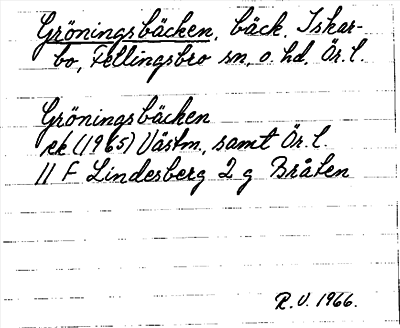 Gröningsbäcken, bäck. Iskar-
bo, Fellingsbro sn, o. hd, Ör. l.
Gröningsbäcken
ek (1965) Västm., samt Ör. l.
11 F Lindesberg 2 g Bråten
R.V. 1966.